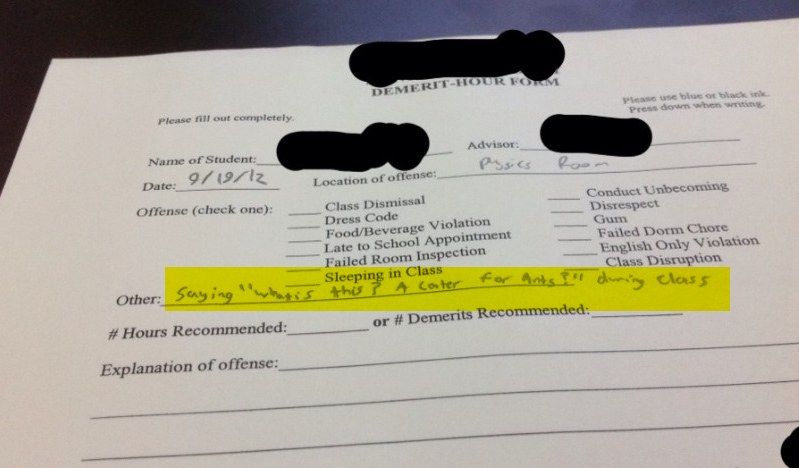 DEMERIT-HOUR FORM
Please fill out completely.
Please use blue or black ink.
Press down when writing.
Name of Student:
Advisor:
Date: 9/19/12
Location of offense: Pysics Room
Offense (check one):
Class Dismissal
Dress Code
Food/Beverage Violation
Late to School Appointment
Failed Room Inspection
Sleeping in Class
Conduct Unbecoming
Disrespect
Gum
Failed Dorm Chore
English Only Violation
Class Disruption
Other: Saying "what is this? A for Ants?" during class
# Hours Recommended: or # Demerits Recommended:
Explanation of offense: